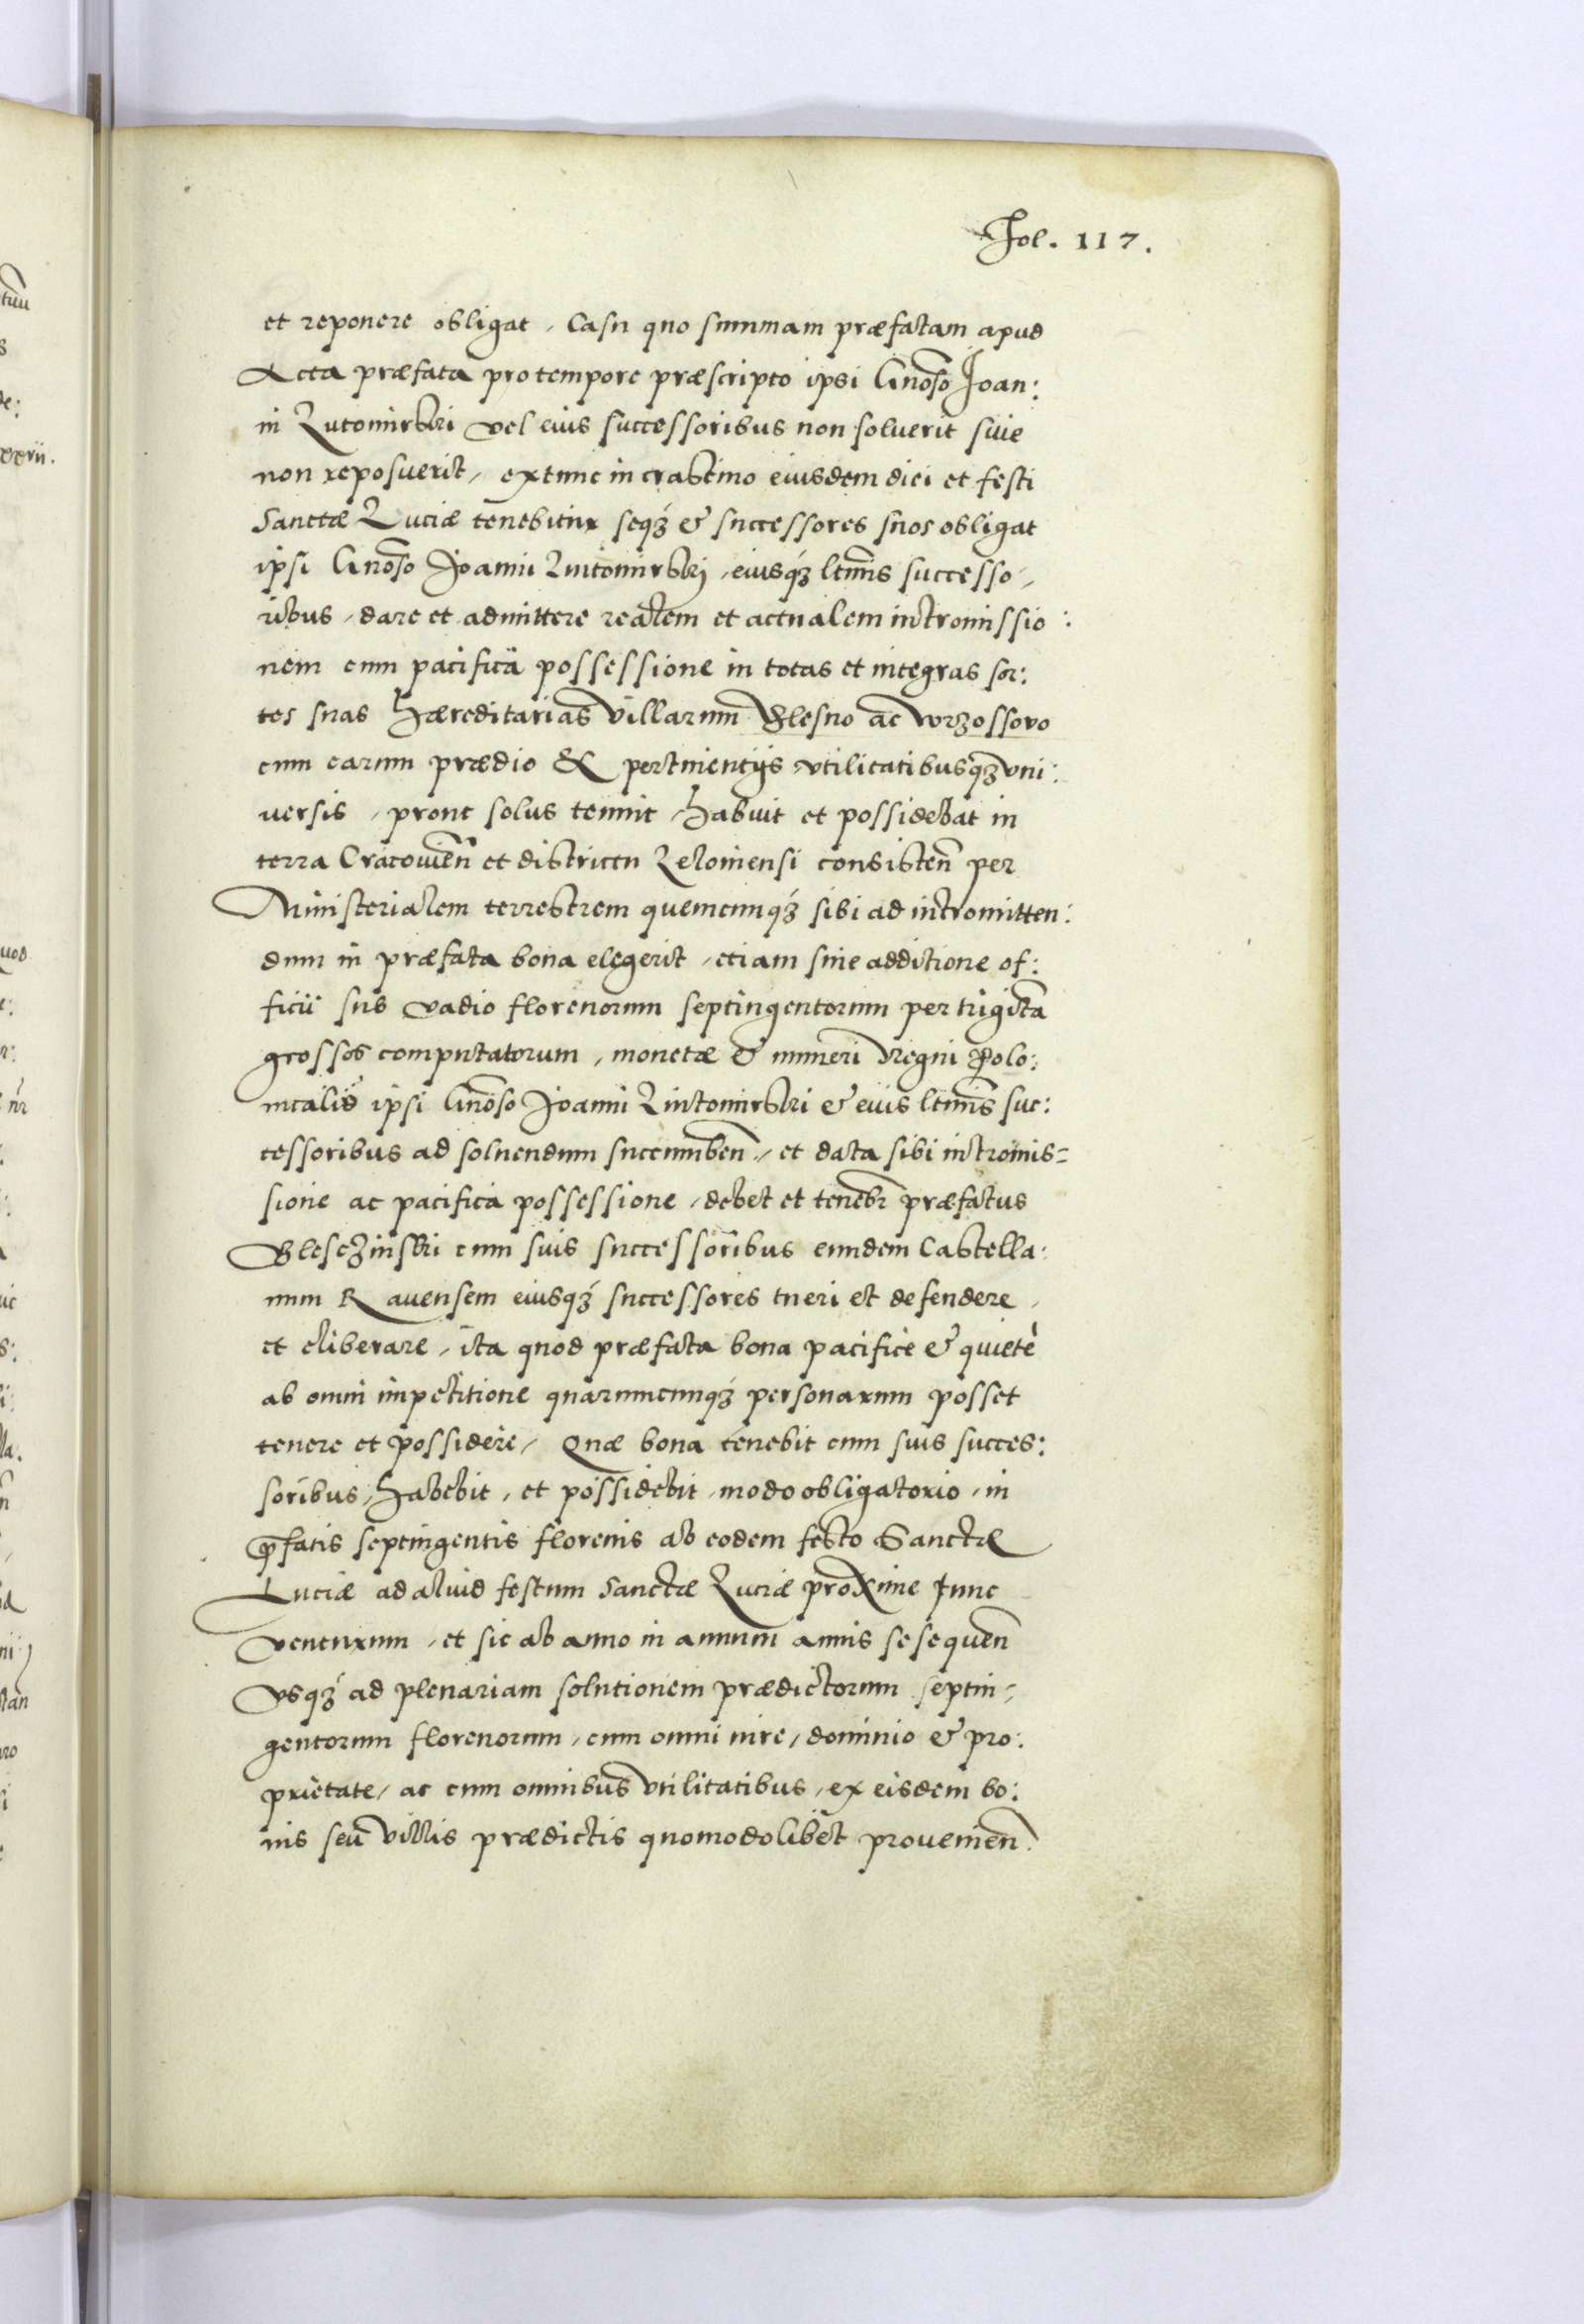 Fol. 117.
et reponere obligat, Casu quo summam præfatam apud
Acta præfata pro tempore præscripto ipsi Gnoso Joan:
ni Lutomirski vel eius successoribus non soluerit siue
non reposuerit, extunc in crastino eiusdem diei et festi
Sanctæ Luciæ tenebitur seqz & successores suos obligat
ipsi Gnoso Joanni Lutomirskj, eiusqz ltimis successo,
ribus, dare et admittere realem et actualem intromissio:
nem cum pacifica possessione in totas et integras sor:
tes suas hæreditarias villarum Glesno ac Wrzossovo
cum earum prædio & pertinentijs vtilitatibusqz vni:
uersis, prout solus tenuit, habuit et possidebat in
terra Cracouien et districtu Lelouiensi consisten per
Ministerialem terrestrem quemcunqz sibi ad intromitten:
dum in præfata bona elegerit, etiam sine additione of:
ficii sub vadio florenorum septingentorum per triginta
grossos computatorum, monetæ & numeri Regni Polo:
nicalis ipsi Gnoso Joanni Lutomirski & eius ltimis suc:
cessoribus ad soluendum succumben, et data sibi intromis=
sione ac pacifica possessione, debet et tenebr præfatus
Glesczinski cum suis successoribus eundem Castella:
num Rauensem eiusqz successores tueri et defendere,
et eliberare, ita quod præfata bona pacificè & quietè
ab omni impetitione quarumcunqz personarum posset
tenere et possidere, Quæ bona tenebit cum suis succes:
soribus, habebit, et possidebit, modo obligatorio, in
pfatis septingentis florenis ab eodem festo Sanctæ
Luciæ ad aliud festum Sanctæ Luciæ proxime tunc
venturum, et sic ab anno in annum annis se sequen
vsqz ad plenariam solutionem prædictorum septin,
gentorum florenorum, cum omni iure, dominio & pro:
prietate, ac cum omnibus vtilitatibus, ex eisdem bo:
nis seu villis prædictis quomodolibet prouenien.